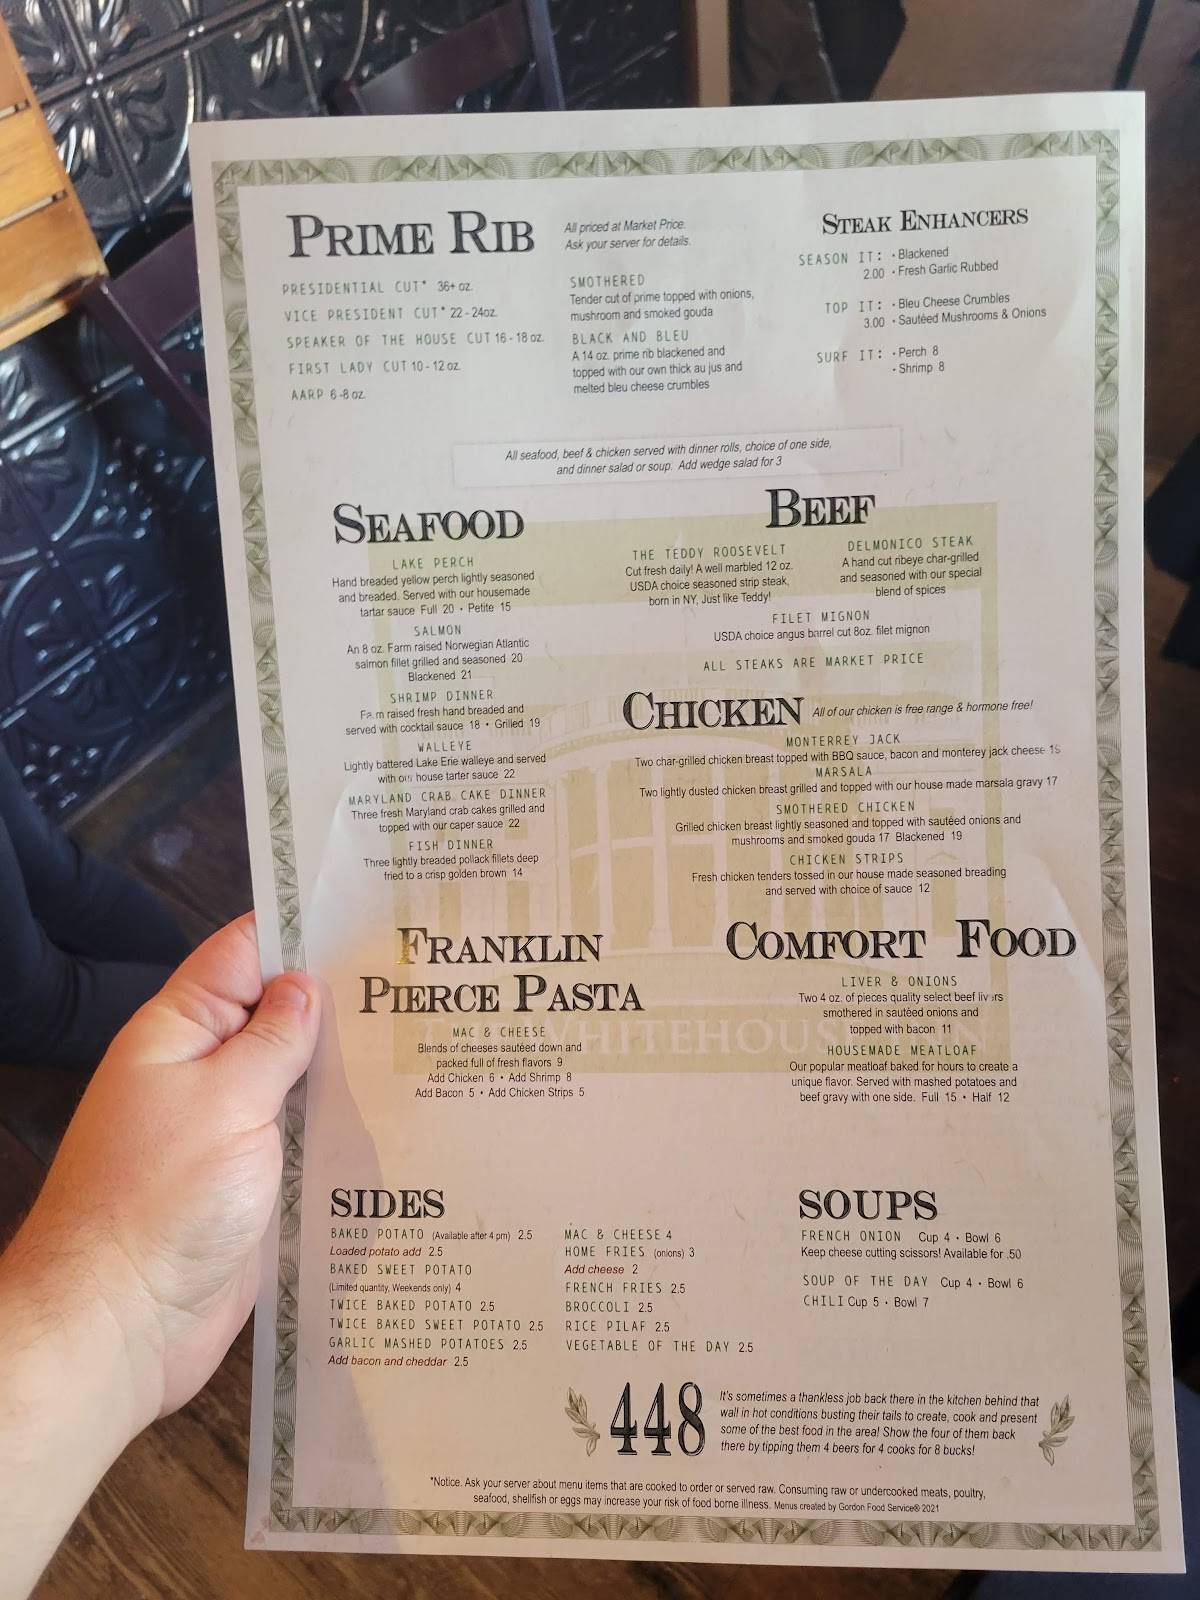 PRIME RIB
All priced at Market Price.
Ask your server for details.
PRESIDENTIAL CUT* 36+ oz.
VICE PRESIDENT CUT* 22 - 24oz.
SPEAKER OF THE HOUSE CUT 16 - 18 oz.
FIRST LADY CUT 10 - 12 oz.
AARP 6 -8 oz.
SMOTHERED
Tender cut of prime topped with onions,
mushroom and smoked gouda
BLACK AND BLEU
A 14 oz. prime rib blackened and
topped with our own thick au jus and
melted bleu cheese crumbles
STEAK ENHANCERS
SEASON IT: • Blackened
2.00 • Fresh Garlic Rubbed
TOP IT: • Bleu Cheese Crumbles
3.00 • Sautéed Mushrooms & Onions
SURF IT: • Perch 8
• Shrimp 8
All seafood, beef & chicken served with dinner rolls, choice of one side,
and dinner salad or soup. Add wedge salad for 3
SEAFOOD
LAKE PERCH
Hand breaded yellow perch lightly seasoned
and breaded. Served with our housemade
tartar sauce Full 20 • Petite 15
SALMON
An 8 oz. Farm raised Norwegian Atlantic
salmon fillet grilled and seasoned 20
Blackened 21
SHRIMP DINNER
Farm raised fresh hand breaded and
served with cocktail sauce 18 • Grilled 19
WALLEYE
Lightly battered Lake Erie walleye and served
with our house tarter sauce 22
MARYLAND CRAB CAKE DINNER
Three fresh Maryland crab cakes grilled and
topped with our caper sauce 22
FISH DINNER
Three lightly breaded pollack fillets deep
fried to a crisp golden brown 14
BEEF
THE TEDDY ROOSEVELT
Cut fresh daily! A well marbled 12 oz.
USDA choice seasoned strip steak,
born in NY, Just like Teddy!
DELMONICO STEAK
A hand cut ribeye char-grilled
and seasoned with our special
blend of spices
FILET MIGNON
USDA choice angus barrel cut 8oz. filet mignon
ALL STEAKS ARE MARKET PRICE
CHICKEN All of our chicken is free range & hormone free!
MONTERREY JACK
Two char-grilled chicken breast topped with BBQ sauce, bacon and monterey jack cheese
MARSALA
Two lightly dusted chicken breast grilled and topped with our house made marsala gravy 17
SMOTHERED CHICKEN
Grilled chicken breast lightly seasoned and topped with sautéed onions and
mushrooms and smoked gouda 17 Blackened 19
CHICKEN STRIPS
Fresh chicken tenders tossed in our house made seasoned breading
and served with choice of sauce 12
FRANKLIN
PIERCE PASTA
MAC & CHEESE
Blends of cheeses sautéed down and
packed full of fresh flavors 9
Add Chicken 6 • Add Shrimp 8
Add Bacon 5 • Add Chicken Strips 5
COMFORT FOOD
LIVER & ONIONS
Two 4 oz. of pieces quality select beef livers
smothered in sautéed onions and
topped with bacon 11
HOUSEMADE MEATLOAF
Our popular meatloaf baked for hours to create a
unique flavor. Served with mashed potatoes and
beef gravy with one side. Full 15 • Half 12
WHITEHOUSE
SIDES
BAKED POTATO (Available after 4 pm) 2.5
Loaded potato add 2.5
BAKED SWEET POTATO
(Limited quantity, Weekends only) 4
TWICE BAKED POTATO 2.5
TWICE BAKED SWEET POTATO 2.5
GARLIC MASHED POTATOES 2.5
Add bacon and cheddar 2.5
MAC & CHEESE 4
HOME FRIES (onions) 3
Add cheese 2
FRENCH FRIES 2.5
BROCCOLI 2.5
RICE PILAF 2.5
VEGETABLE OF THE DAY 2.5
SOUPS
FRENCH ONION Cup 4 • Bowl 6
Keep cheese cutting scissors! Available for .50
SOUP OF THE DAY Cup 4 • Bowl 6
CHILI Cup 5 • Bowl 7
448
It's sometimes a thankless job back there in the kitchen behind that
wall in hot conditions busting their tails to create, cook and present
some of the best food in the area! Show the four of them back
there by tipping them 4 beers for 4 cooks for 8 bucks!
*Notice. Ask your server about menu items that are cooked to order or served raw. Consuming raw or undercooked meats, poultry,
seafood, shellfish or eggs may increase your risk of food borne illness. Menus created by Gordon Food Service® 2021